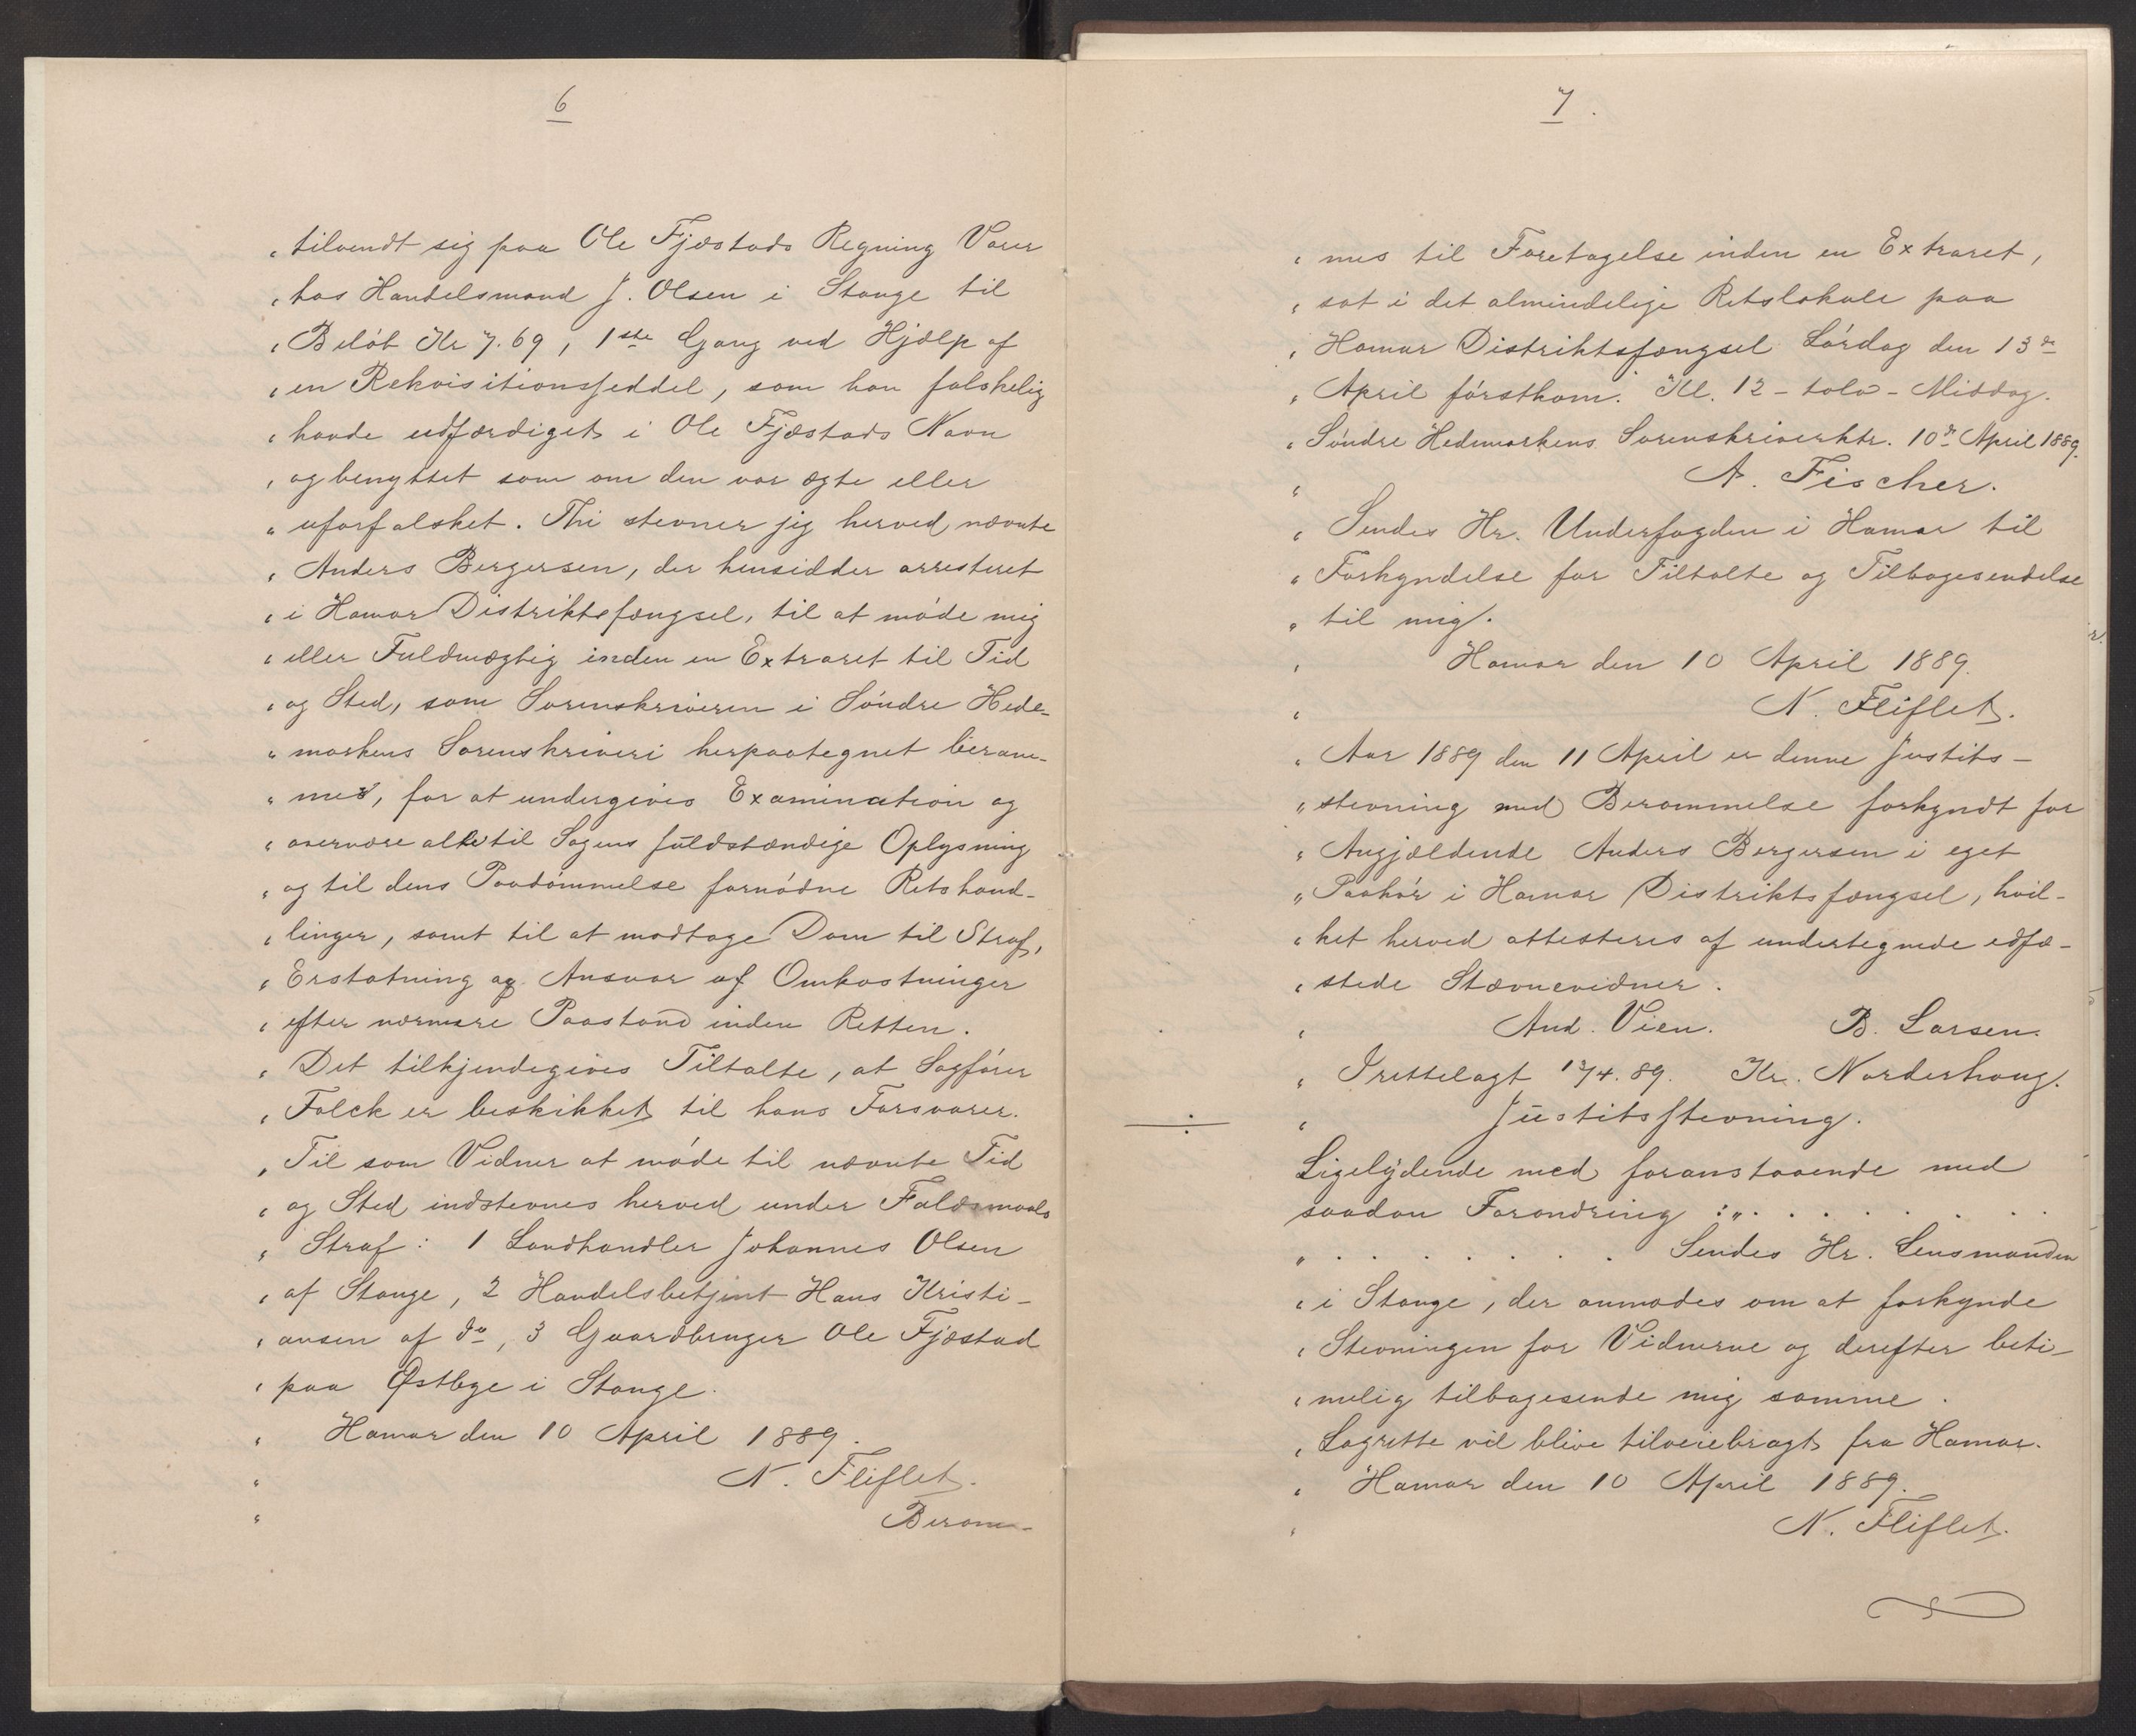 6
" tilvendt sig paa Ole Fjæstads Regning Varer
" hos Handelsmand J. Olsen i Stange til
" Beløb Kr 7.69, 1ste Gang ved Hjælp af
" en Rekvisitionsseddel, som han falskelig
" havde udfærdiget i Ole Fjæstads Navn
" og benyttet som om den var ægte eller
" uforfalsket. Thi stevner jeg herved nævnte
" Anders Bergersen, der hensidder arresteret
" i Hamar Distriktsfængsel, til at møde mig
" eller Fuldmægtig inden en Extraret til Tid
" og Sted, som Sorenskriveren i Søndre Hede-
" markens Sorenskriveri herpaategnet beram-
" mer, for at undergives Examination og
" overvære alle til Sagens fuldstændige Oplysning
" og til dens Paadømmelse fornødne Retshand-
" linger, samt til at modtage Dom til Straf,
" Erstatning og Ansvar af Omkostninger
" efter nærmere Paastand inden Retten.
" Det tilkjendegives Tiltalte, at Sagfører
" Falck er beskikket til hans Forsvarer.
" Til som Vidner at møde til nævnte Tid
" og Sted indstevnes herved under Faldsmaals
" Straf: 1 Landhandler Johannes Olsen
" af Stange, 2 Handelsbetjent Hans Kristi-
" ansen af do, 3 Gaardbruger Ole Fjæstad
" paa Østbye i Stange.
" Hamar den 10 April 1889.
" N. Fliflet.
" Beram-
7.
" mes til Foretagelse inden en Extraret,
" sat i det almindelige Retslokale paa
" Hamar Distriktsfængsel Lørdag den 13de
" April førstkom. Kl. 12 - tolv - Middag.
" Søndre Hedemarkens Sorenskriverktr. 10de April 1889.
" A. Fischer.
" Sendes Hr. Underfogden i Hamar til
" Forkyndelse for Tiltalte og Tilbagesendelse
" til mig.
" Hamar den 10 April 1889.
" N. Fliflet.
" Aar 1889 den 11 April er denne Justits-
" stevning med Berammelse forkyndt for
" Angjældende Anders Bergersen i eget
" Paahør i Hamar Distriktsfængsel, hvil-
" ket herved attesteres af undertegnede edfæ-
" stede Stævnevidner.
" And. Vien. B. Larsen.
" Irettelagt 13/4.89. Kr. Norderhoug.
" Justitsstevning.
Ligelydende med foranstaaende med
saadan Forandring : " . . . . . . . .
" . . . . . . . Sendes Hr. Lensmanden
" i Stange, der anmodes om at forkynde
" Stevningen for Vidnerne og derefter beti-
" melig tilbagesende mig samme.
" Lagrette vil blive tilveiebragt fra Hamar.
" Hamar den 10 April 1889.
" N. Fliflet.